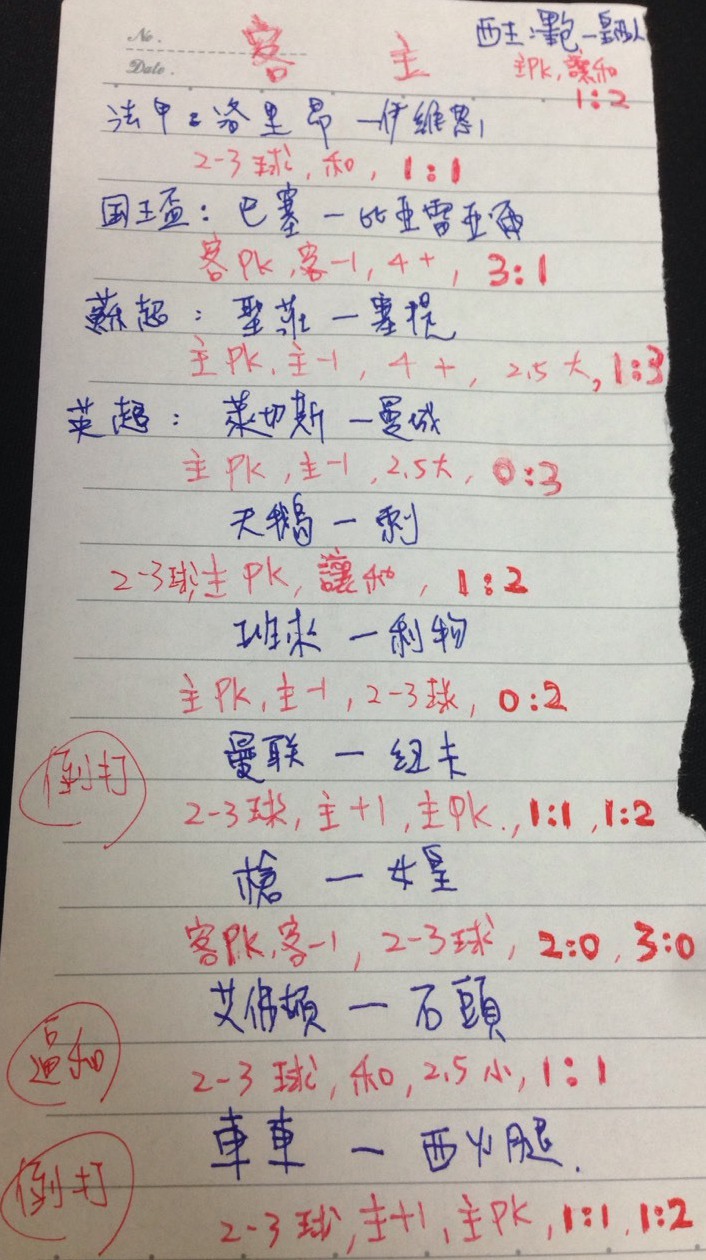 No.
Date.
客 主
西王:墨包-皇家队
主PK,讓和
1:2
法甲:洛里昂-伊維恩
2-3球,和,1:1
国王盃:巴塞-比亚雷亚爾
客PK,客-1,4+,3:1
蘇超:聖莊-塞提
主PK.主-1,4+,2.5大,1:3
英超:萊切斯-曼城
主PK,主-1,2.5大,0:3
天鵝-刺
2-3球,主PK,讓和,1:2
班來-利物
主PK,主-1,2-3球,0:2
倒打
曼联-纽卡
2-3球,主+1,主PK.,1:1,1:2
槍-女皇
客PK.客-1,2-3球,2:0,3:0
艾佛頓-石頭
逼和
2-3球,和,2.5小,1:1
車車-西火腿.
倒打
2-3球,主+1,主PK,1:1,1:2